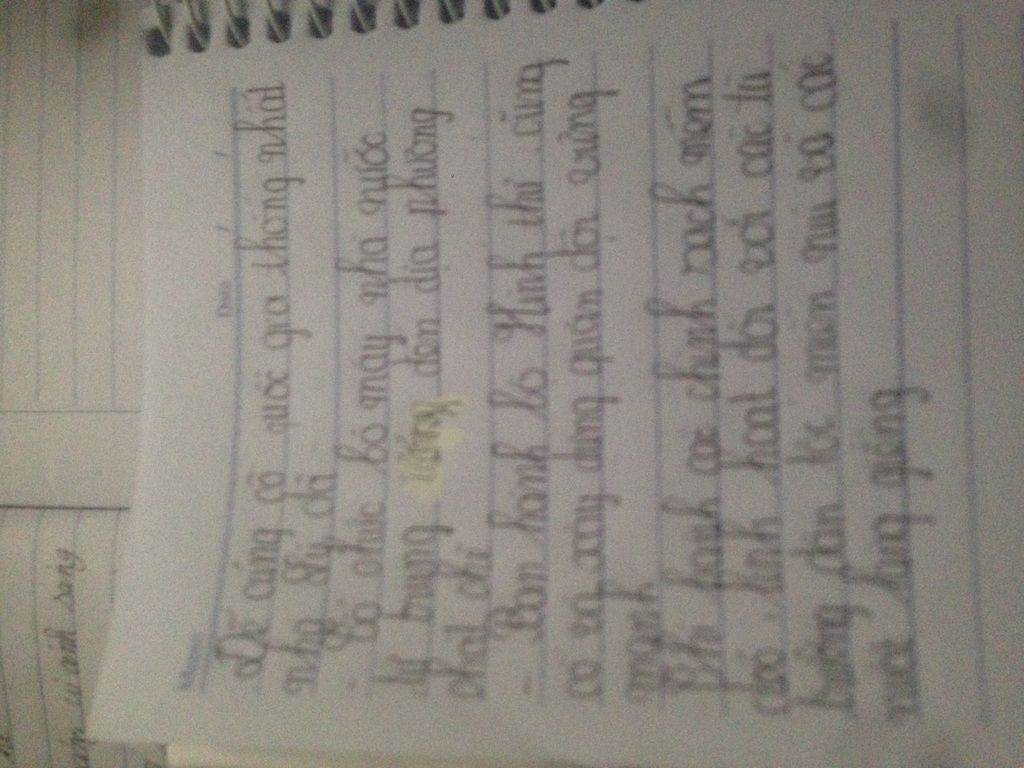 Date / /
Để củng cố quốc gia thống nhất
nhà Lý đã
- Tổ chức bộ máy nhà nước
từ trung ương đến địa phương
chặt chẽ
- Ban hành bộ Hình thư củng
cố và xây dựng quân đội vững
mạnh
Thi hành các chính sách mềm
dẻo, linh hoạt đối với các tù
trưởng dân tộc miền núi và các
nước láng giềng
ánh sáng